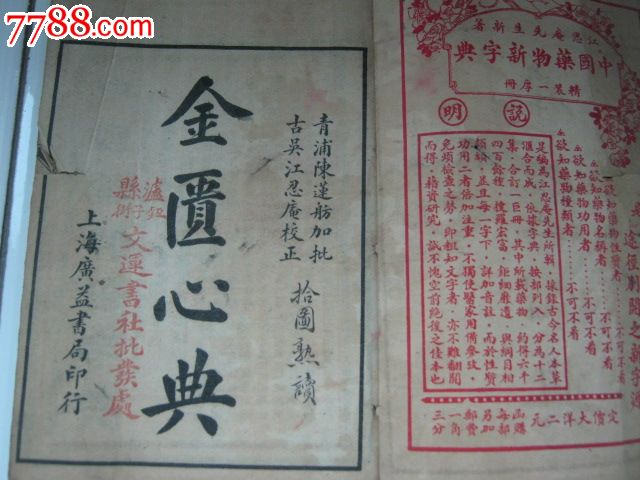 7788.com
青浦陳蓮舫加批
古吳江忍庵校正
拾圖熟讀
金匱心典
文運書社批發處
上海廣益書局印行
江忍庵先生新著
中國藥物新字典
精裝一厚冊
說明
欲知藥物性質者……不可不看
欲知藥物名稱者……不可不看
欲知藥物功用者……不可不看
欲知藥物種類者……不可不看
是編為江忍庵先生所輯．採錄古今名人本草
匯合而成．依據字典．按部列入．分為十二
集．合訂一巨冊．其中所載藥物．約得六千
四百餘種．搜羅宏富．鉅細靡遺．與綱目相
頡頏．並且每一字下．詳加音註．而於性質
功用二者倍加注重．不獨使醫家用備參攷．
免煩檢查之勞．即粗知文字者．亦不難翻閱
而得．藉資研究．誠不愧空前絕後之佳本也
定價大洋二元
函購每部另加郵費一角三分